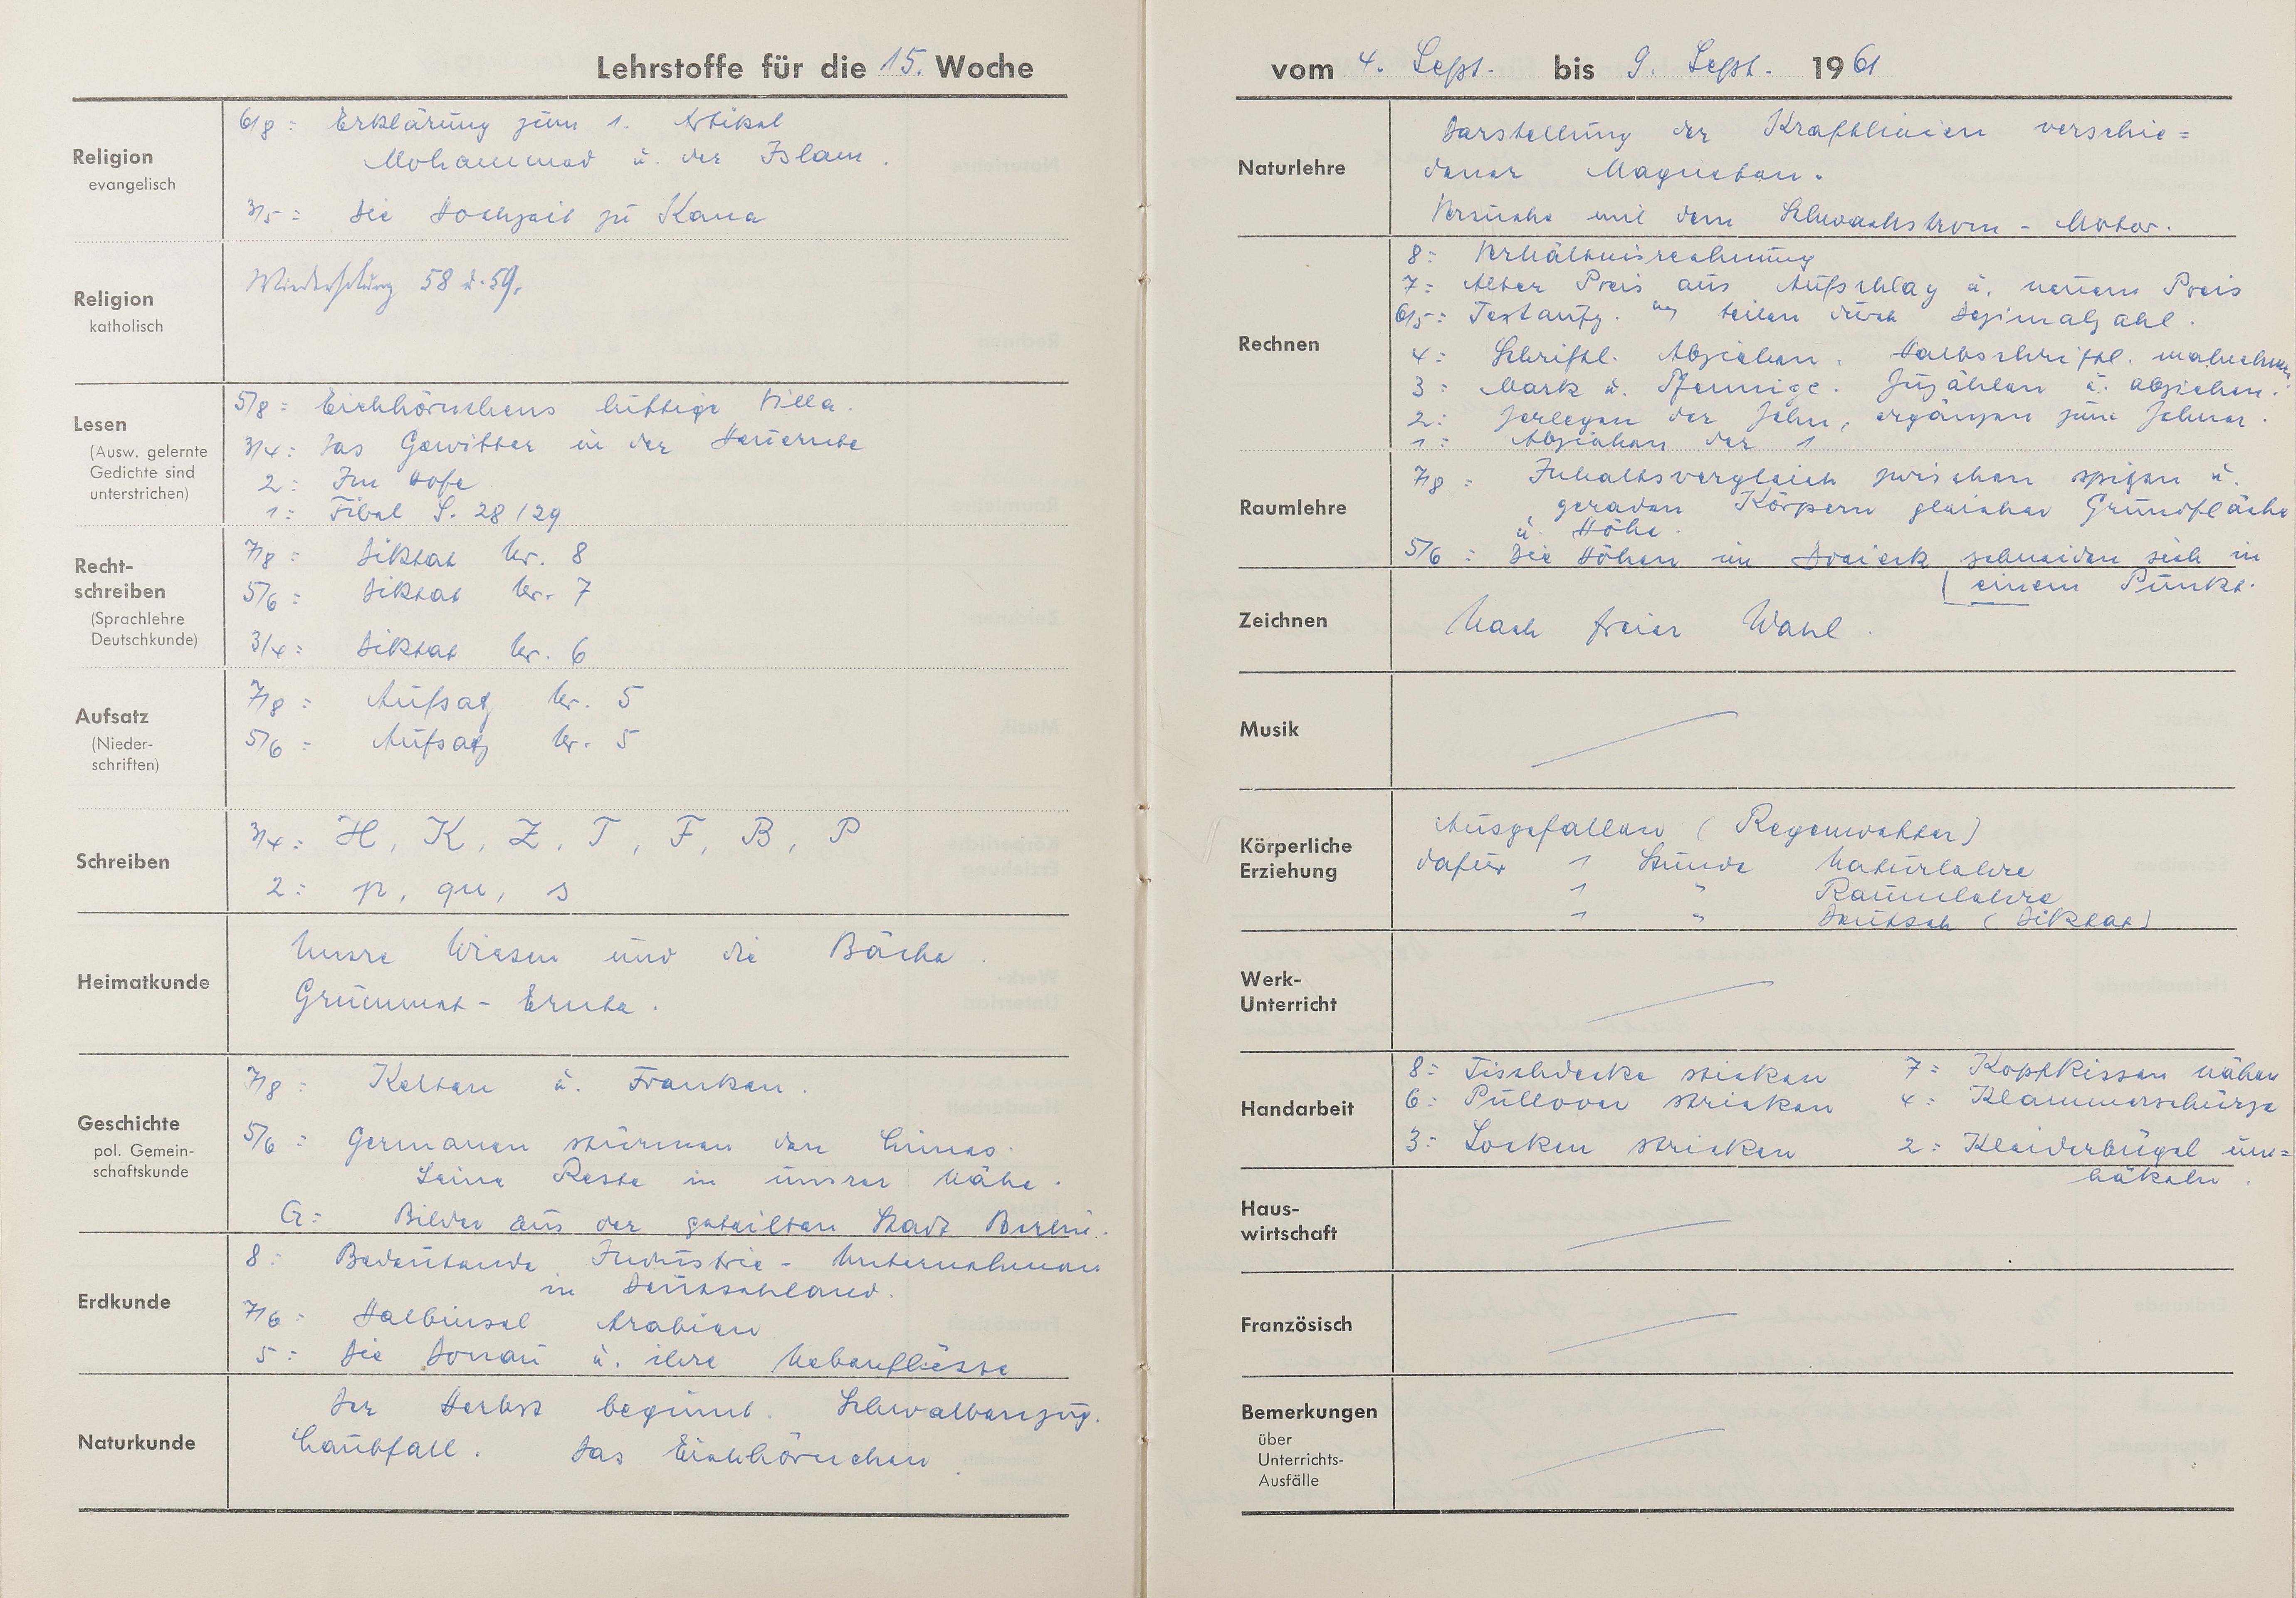 Lehrstoffe für die 15. Woche
Religion
evangelisch
6/8 : Erklärung zum 1. Artikel
Mohammed u. der Islam.
3/5 : Die Hochzeit zu Kana
Religion
katholisch
Wiederholung 58 u. 59.
Lesen
(Ausw. gelernte
Gedichte sind
unterstrichen)
5/8 : Eichhörnchens luftige Villa.
3/4 : Das Gewitter in der Heuernte
2 : Im Hofe
1 : Fibel S. 28/29
Recht-
schreiben
(Sprachlehre
Deutschkunde)
7/8 : Diktat Nr. 8
5/6 : Diktat Nr. 7
3/4 : Diktat Nr. 6
Aufsatz
(Nieder-
schriften)
7/8 : Aufsatz Nr. 5
5/6 : Aufsatz Nr. 5
Schreiben
3/4 : H, K, Z, T, F, B, P
2 : p, qu, s
Heimatkunde
Unsre Wiesen und die Bäche.
Grummet - Ernte.
Geschichte
pol. Gemein-
schaftskunde
7/8 : Kelten u. Franken.
5/6 : Germanen stürmen den Limes.
Seine Reste in unsrer Nähe.
G : Bilder aus der geteilten Stadt Berlin.
Erdkunde
8 : Bedeutende Industrie - Unternehmen
in Deutschland.
7/6 : Halbinsel Arabien
5 : Die Donau u. ihre Nebenflüsse
Naturkunde
Der Herbst beginnt. Schwalbenzug.
Laubfall. Das Eichhörnchen
vom 4. Sept. bis 9. Sept. 1961
Naturlehre
Darstellung der Kraftlinien verschie=
dener Magneten.
Versuche mit dem Schwachstrom - Motor.
Rechnen
8 : Verhältnisrechnung
7 : Alter Preis aus Aufschlag u. neuem Preis
6/5 : Textaufg. teilen durch Dezimalzahl.
4 : Schriftl. Abziehen. Halbschriftl. malnehmen.
3 : Mark u. Pfennige. Zuzählen u. abziehen.
2 : Zerlegen der Zehn, ergänzen zum Zehner.
1 : Abziehen der 1
Raumlehre
7/8 : Inhaltsvergleich zwischen spitzen u.
geraden Körpern gleicher Grundfläche
u. Höhe.
5/6 : Die Höhen im Dreieck schneiden sich in
einem Punkt.
Zeichnen
Nach freier Wahl.
Musik
Körperliche
Erziehung
Ausgefallen (Regenwetter)
dafür 1 Stunde Naturlehre
1 " Raumlehre
1 " Deutsch (Diktat)
Werk-
Unterricht
Handarbeit
8 : Tischdecke sticken 7 : Kopfkissen nähen
6 : Pullover stricken 4 : Klammerschürze
3 : Socken stricken 2 : Kleiderbügel um=
häkeln.
Haus-
wirtschaft
Französisch
Bemerkungen
über
Unterrichts-
Ausfälle